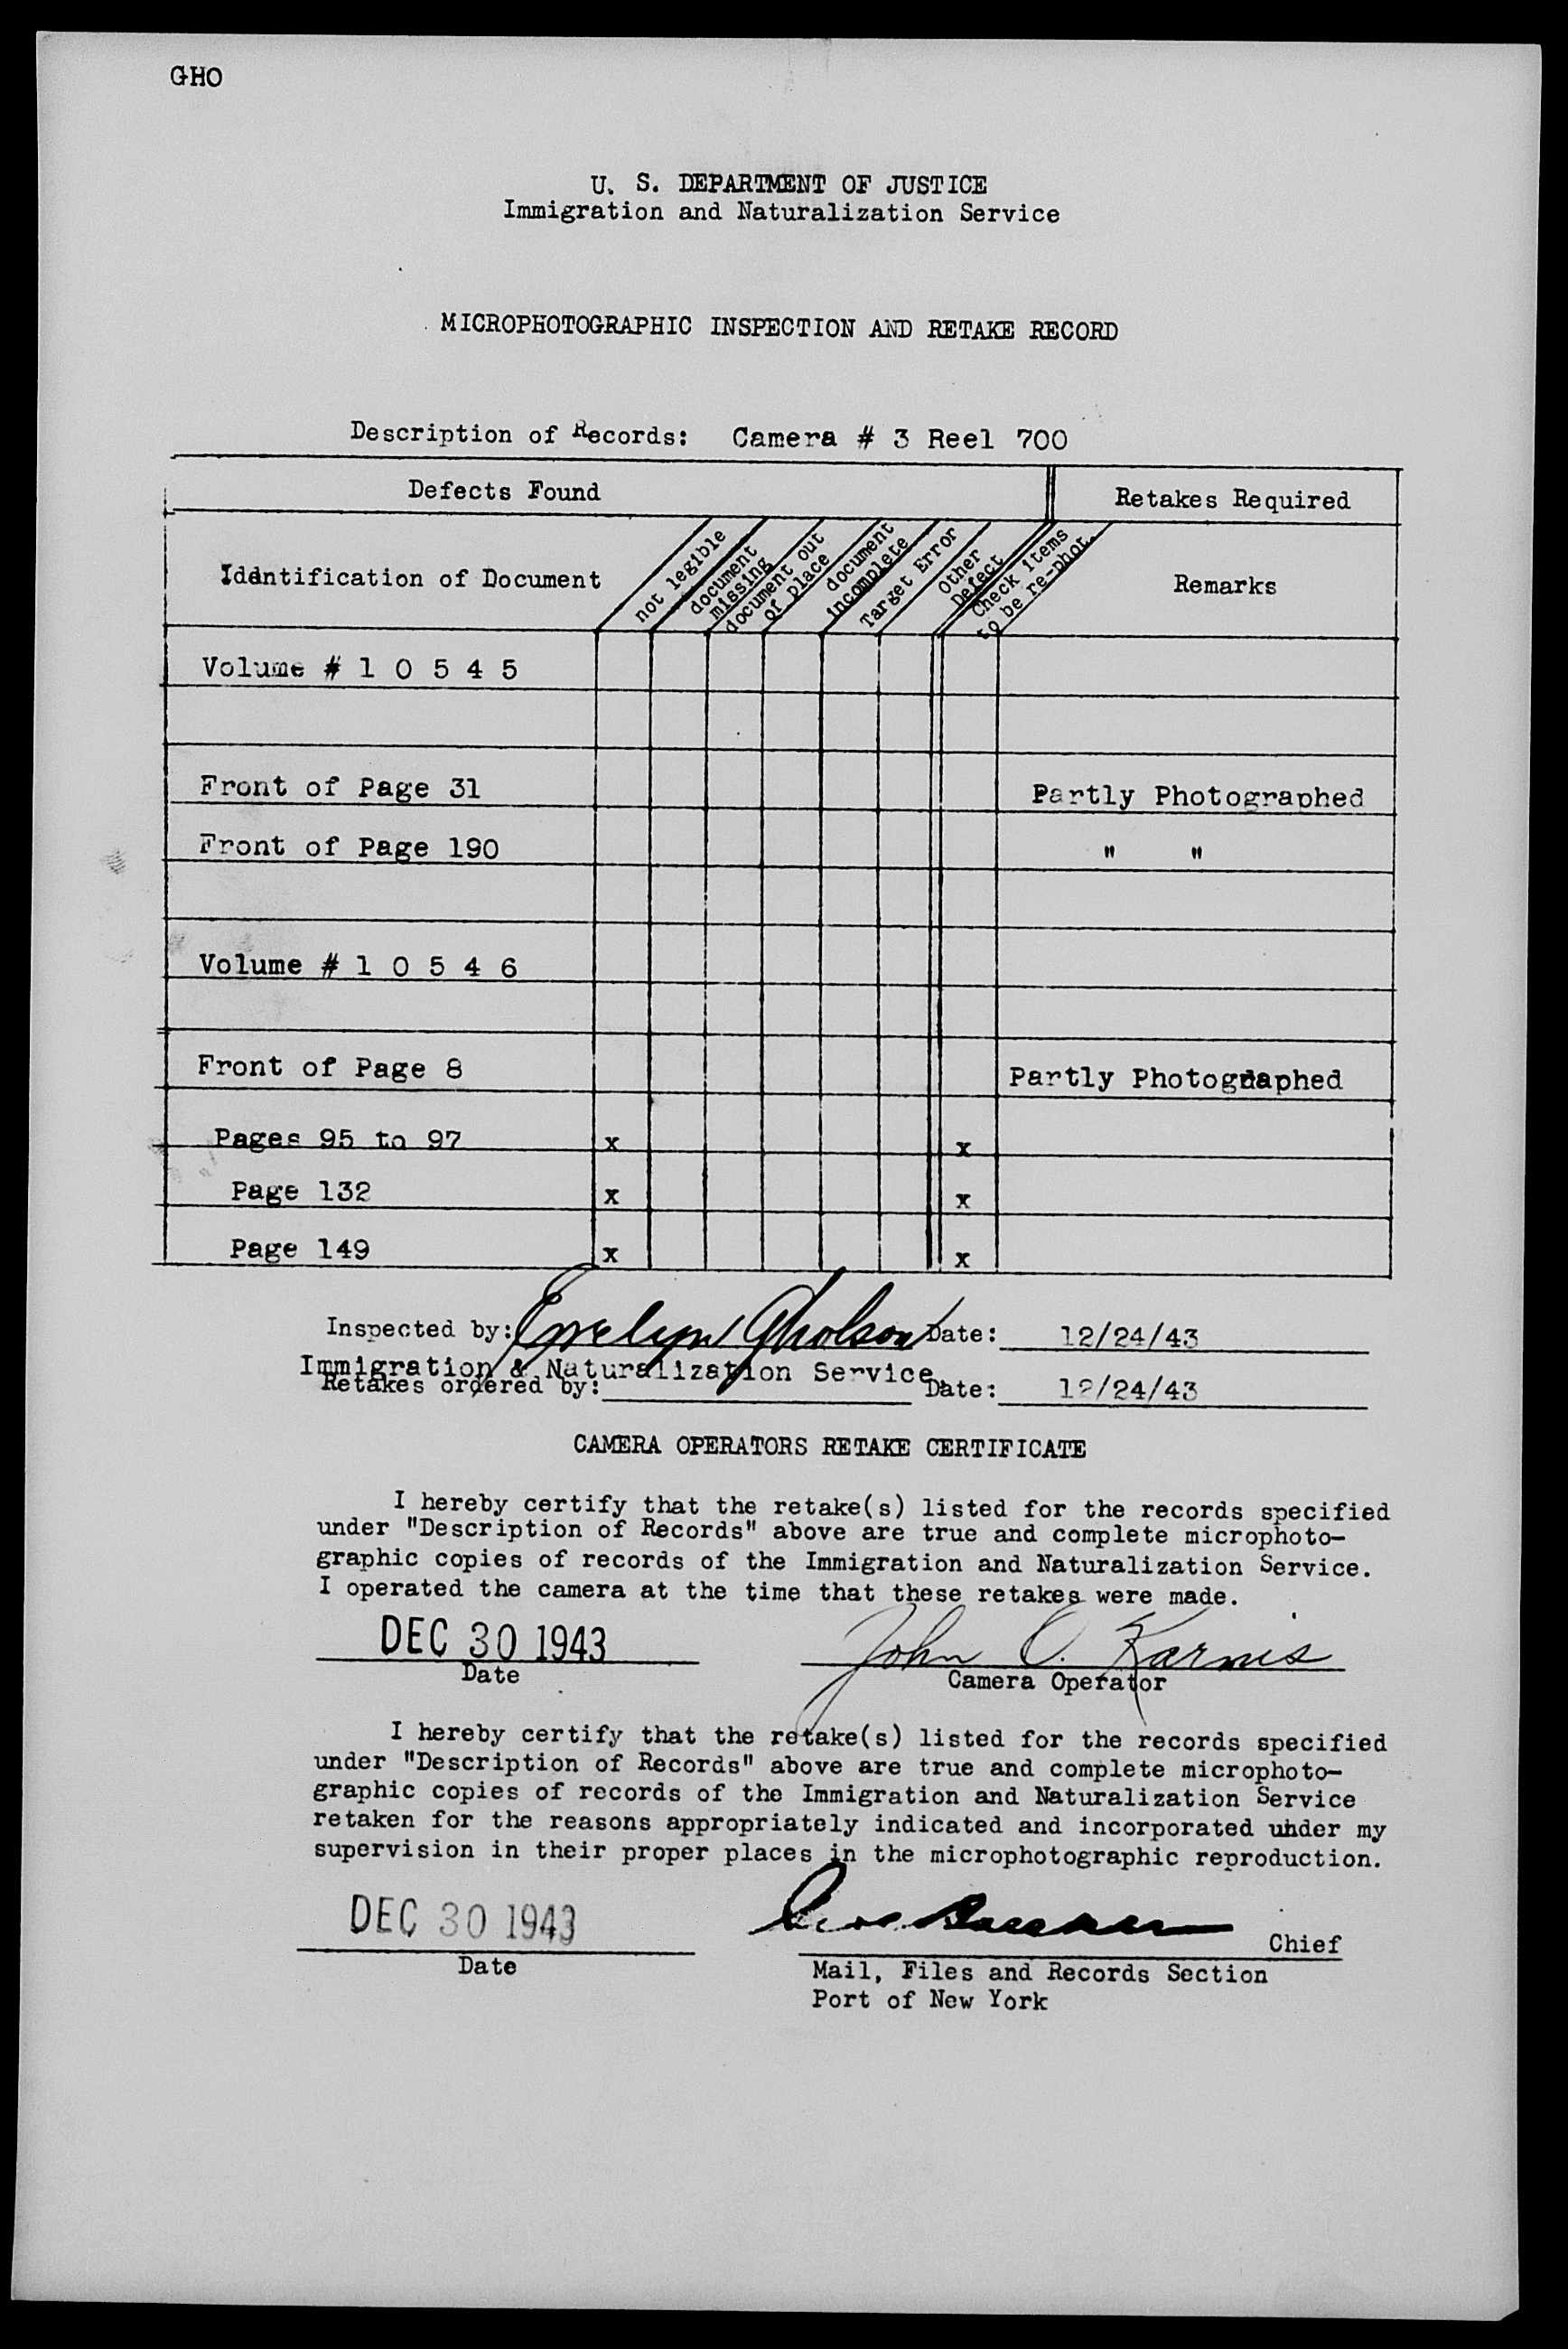 GHO
U. S. DEPARTMENT OF JUSTICE
Immigration and Naturalization Service
MICROPHOTOGRAPHIC INSPECTION AND RETAKE RECORD
Description of Records: Camera # 3 Reel 700
Defects Found
Retakes Required
Identification of Document
not legible
document missing
document out of place
document incomplete
Target Error
Other Defect
Check items to be re-phot.
Remarks
Volume # 1 0 5 4 5
Front of Page 31 Partly Photographed
Front of Page 190 " "
Volume # 1 0 5 4 6
Front of Page 8 Partly Photographed
Pages 95 to 97 x x
Page 132 x x
Page 149 x x
Inspected by: Evelyn Gholson Date: 12/24/43
Immigration & Naturalization Service
Retakes ordered by: Date: 12/24/43
CAMERA OPERATORS RETAKE CERTIFICATE
I hereby certify that the retake(s) listed for the records specified
under "Description of Records" above are true and complete microphoto-
graphic copies of records of the Immigration and Naturalization Service.
I operated the camera at the time that these retakes were made.
DEC 30 1943 John O. Karnis
Date Camera Operator
I hereby certify that the retake(s) listed for the records specified
under "Description of Records" above are true and complete microphoto-
graphic copies of records of the Immigration and Naturalization Service
retaken for the reasons appropriately indicated and incorporated under my
supervision in their proper places in the microphotographic reproduction.
DEC 30 1943
Chief
Date
Mail, Files and Records Section
Port of New York